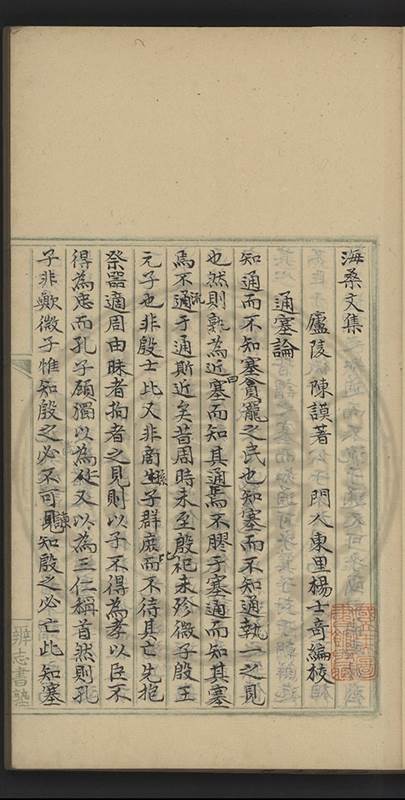 海桑文集
廬陵 陳謨著 門人東里楊士奇編校
通塞論
知通而不知塞貪寵之民也知塞而不知通執一之見
也然則孰為近曰塞而知其通焉不膠于塞通而知其塞
焉不流于通斯近矣昔周時未至殷祀未殄微子殷王
元子也非殷士比又非商孫子群庶而不待其亡先抱
祭器適周由昧者拘者之見則以子不得為孝以臣不
得為忠而孔子顧獨以為從又以為三仁稱首然則孔
子非歟微子惟知殷之必不可諫知殷之必亡此知塞
辨志書塾